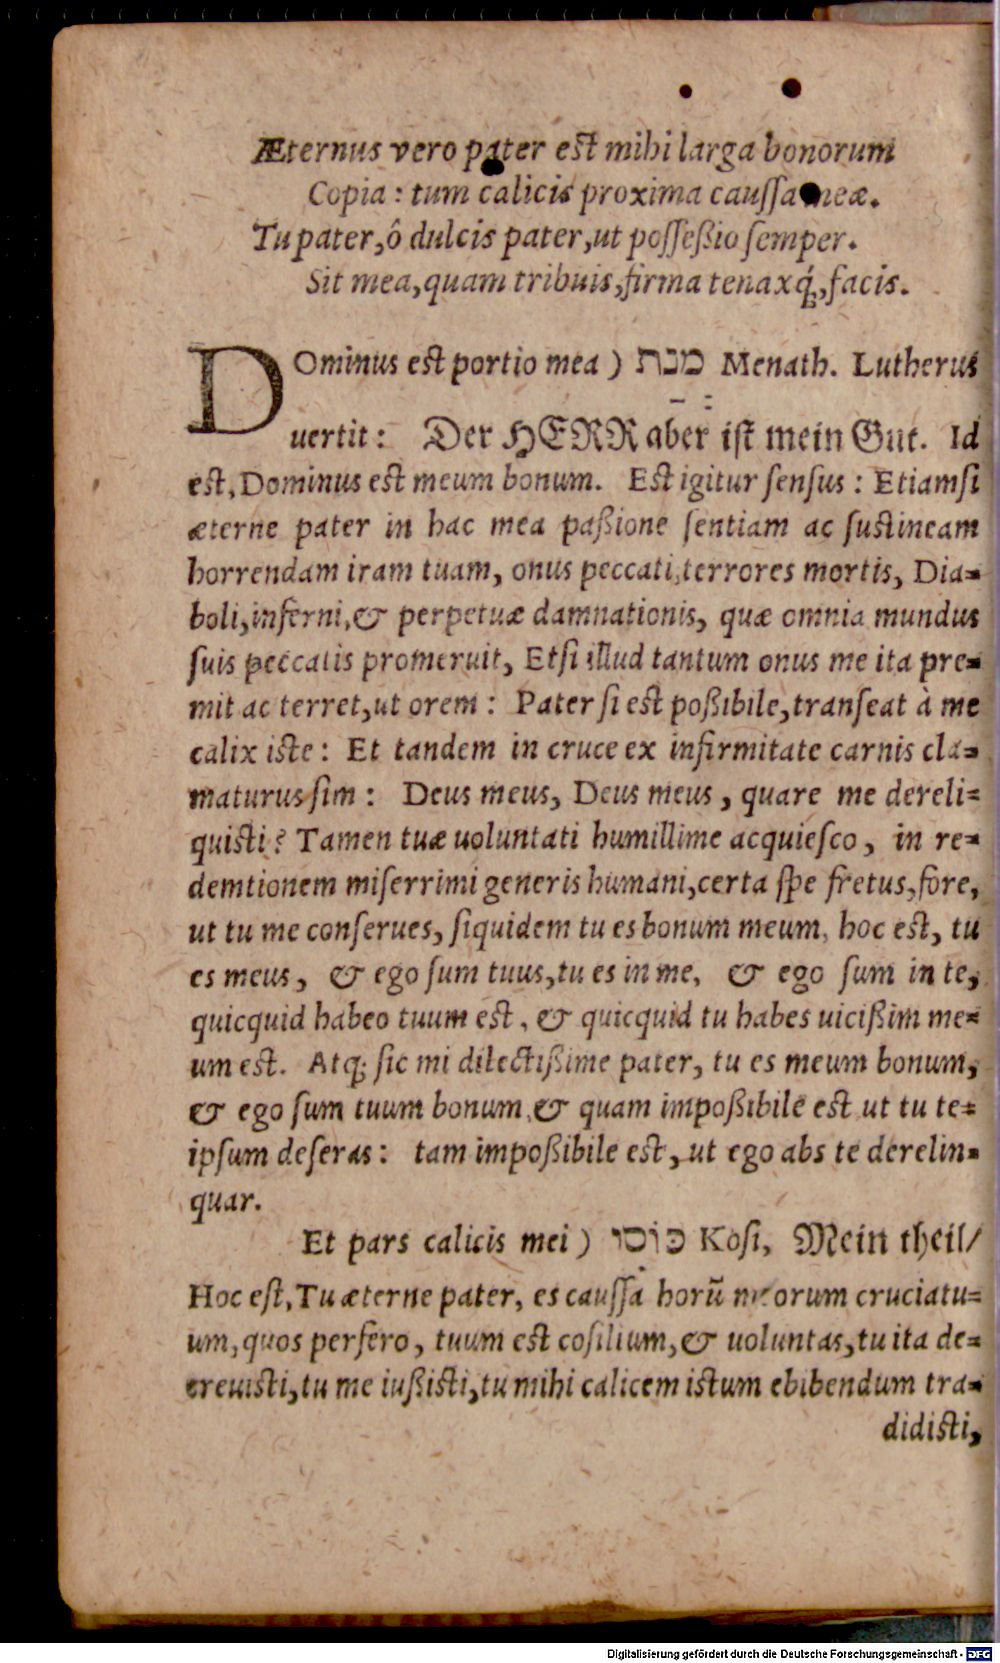 Æternus vero pater est mihi larga bonorum
Copia: tum calicis proxima caussa meæ.
Tu pater, ô dulcis pater, ut posseßio semper.
Sit mea, quam tribuis, firma tenaxq́;, facis.
DOminus est portio mea ) מנת Menath. Lutherus
uertit: Der HERR aber ist mein Gut. Id
est, Dominus est meum bonum. Est igitur sensus: Etiamsi
æterne pater in hac mea paßione sentiam ac sustineam
horrendam iram tuam, onus peccati, terrores mortis, Dia=
boli, inferni, & perpetuæ damnationis, quæ omnia mundus
suis peccatis promeruit, Etsi illud tantum onus me ita pre=
mit ac terret, ut orem: Pater si est poßibile, transeat à me
calix iste: Et tandem in cruce ex infirmitate carnis cla=
maturus sim: Deus meus, Deus meus, quare me dereli=
quisti? Tamen tuæ uoluntati humillime acquiesco, in re=
demtionem miserrimi generis humani, certa spe fretus, fore,
ut tu me conserues, siquidem tu es bonum meum, hoc est, tu
es meus, & ego sum tuus, tu es in me, & ego sum in te,
quicquid habeo tuum est, & quicquid tu habes uicißim me=
um est. Atq; sic mi dilectißime pater, tu es meum bonum,
& ego sum tuum bonum, & quam impoßibile est ut tu te=
ipsum deseras: tam impoßibile est, ut ego abs te derelin=
quar.
Et pars calicis mei ) כוסי Kosi, Mein theil/
Hoc est, Tu æterne pater, es caussa horũ meorum cruciatu=
um, quos perfero, tuum est cosilium, & uoluntas, tu ita de=
creuisti, tu me iußisti, tu mihi calicem istum ebibendum tra=
didisti,
Digitalisierung gefördert durch die Deutsche Forschungsgemeinschaft - DFG